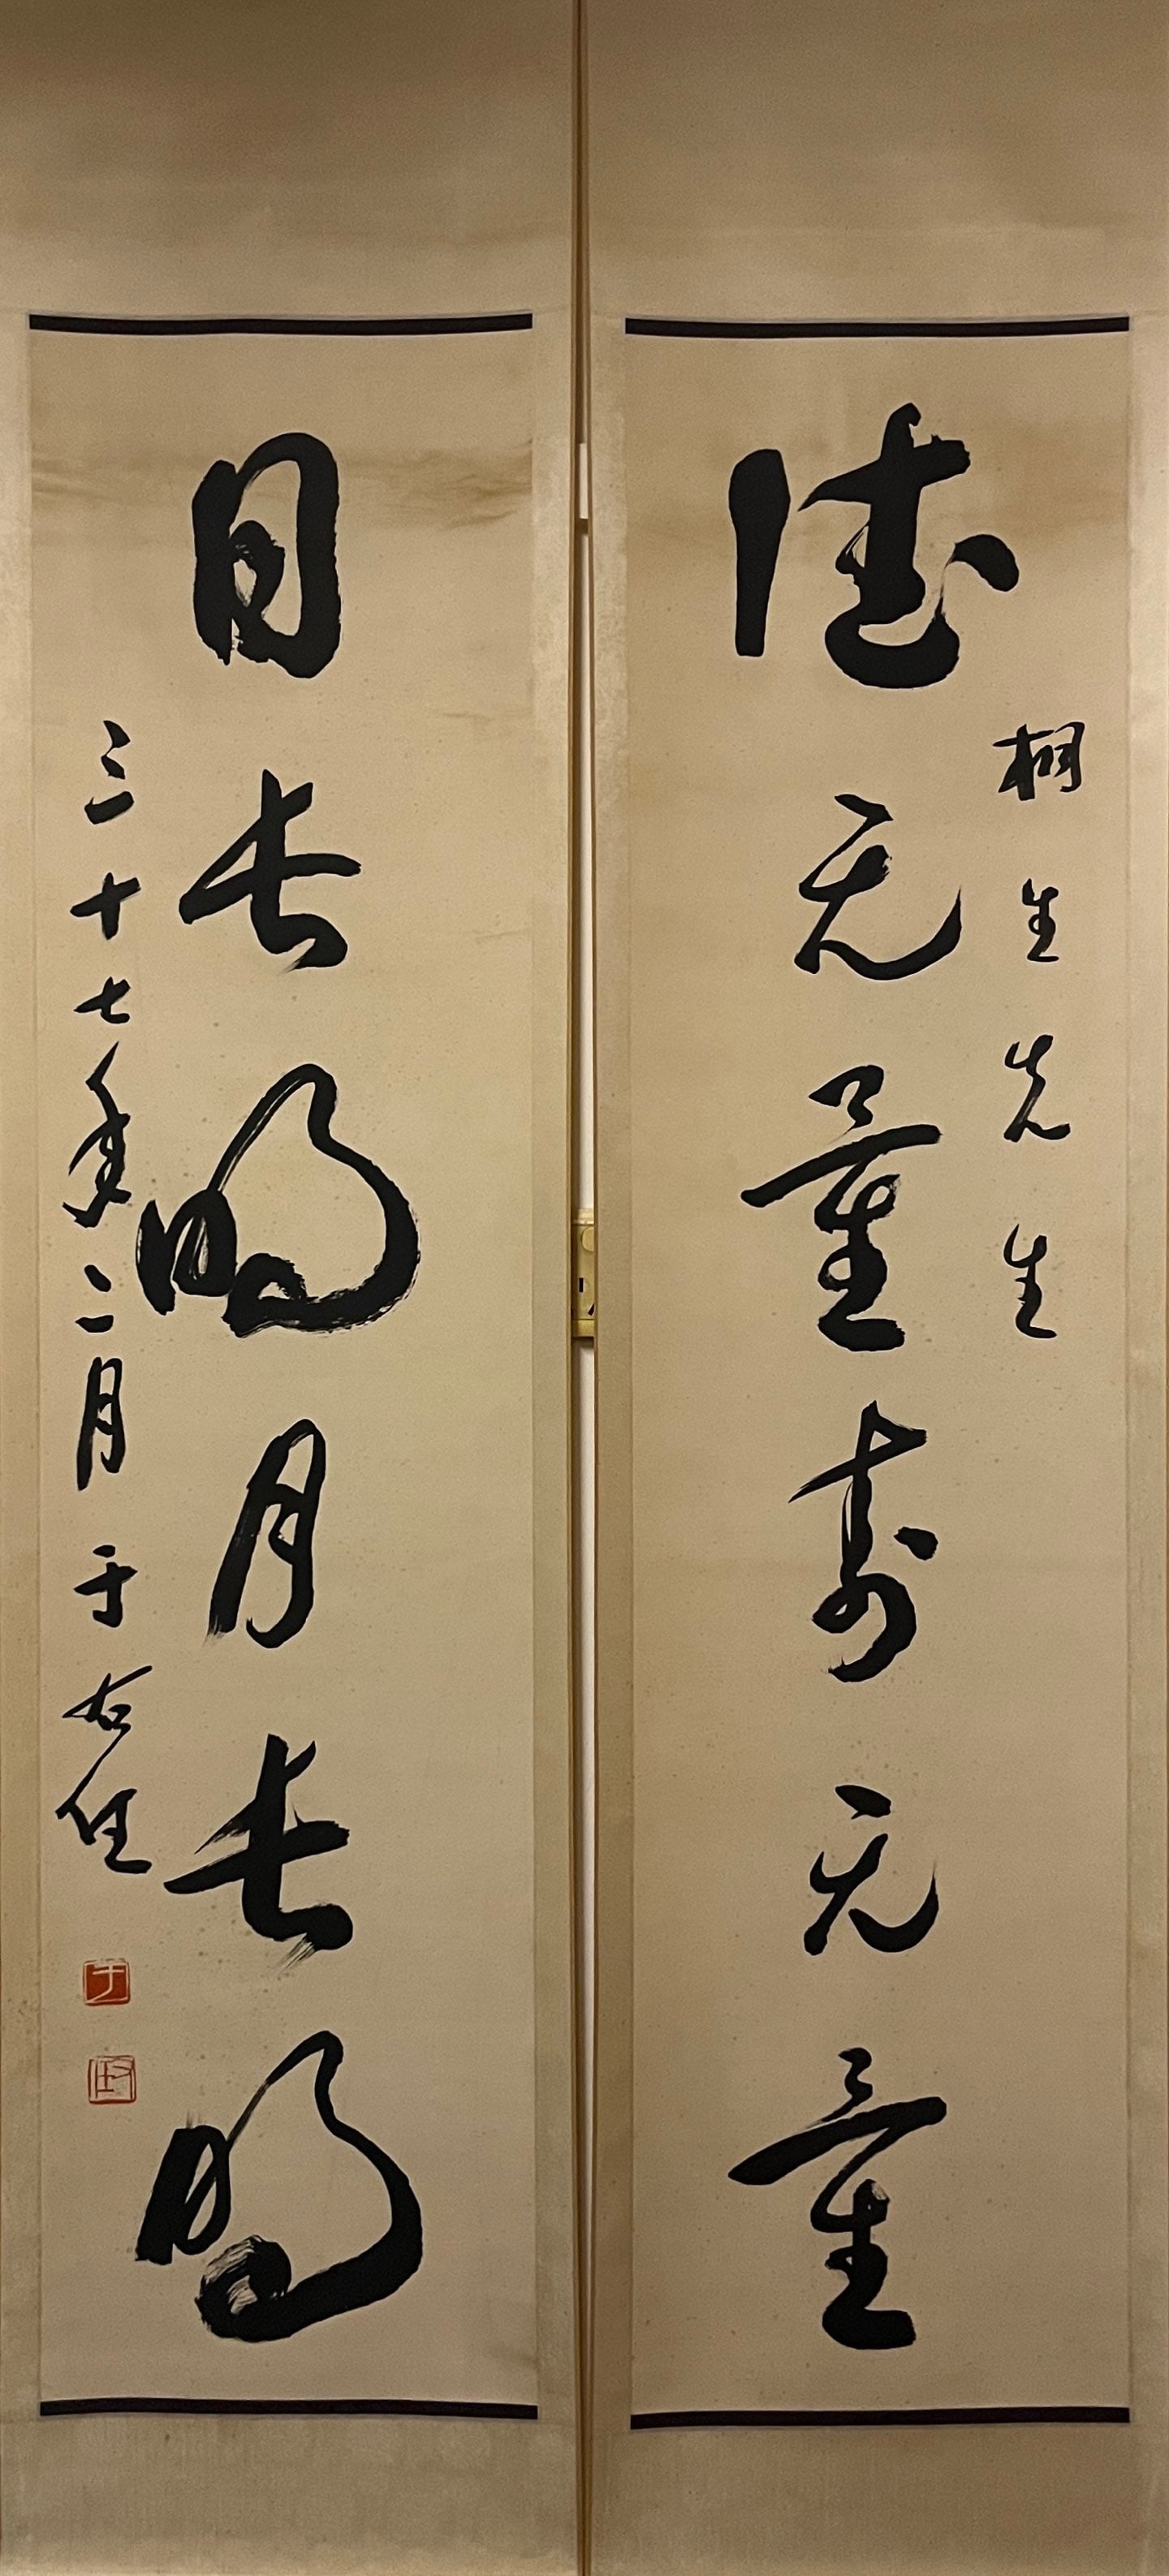 德无量寿无量
桐生先生
日长明月长明
三十七年二月 于右任
于
右任